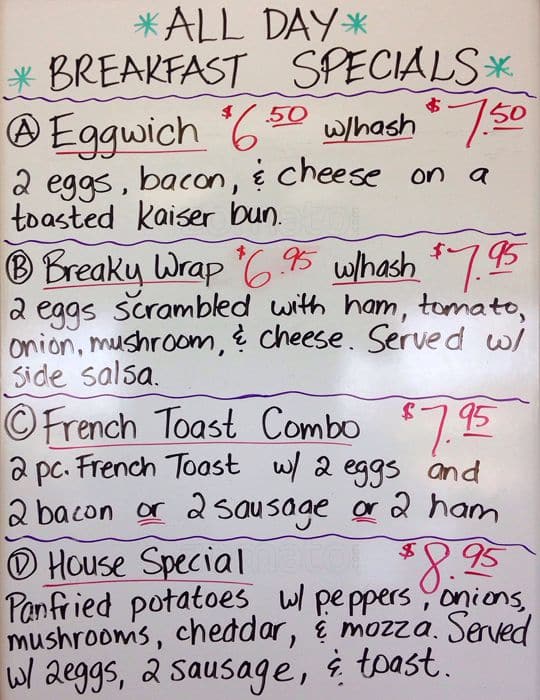 *ALL DAY*
*BREAKFAST SPECIALS*
Ⓐ Eggwich $6.50 w/hash $7.50
2 eggs, bacon, & cheese on a
toasted Kaiser bun.
Ⓑ Breaky Wrap $6.95 w/hash $7.95
2 eggs scrambled with ham, tomato,
onion, mushroom, & cheese. Served w/
side salsa.
Ⓒ French Toast Combo $7.95
2 pc. French Toast w/ 2 eggs and
2 bacon or 2 sausage or 2 ham
Ⓓ House Special $8.95
Panfried potatoes w/ peppers, onions,
mushrooms, cheddar, & mozza. Served
w/ 2eggs, 2 sausage, & toast.